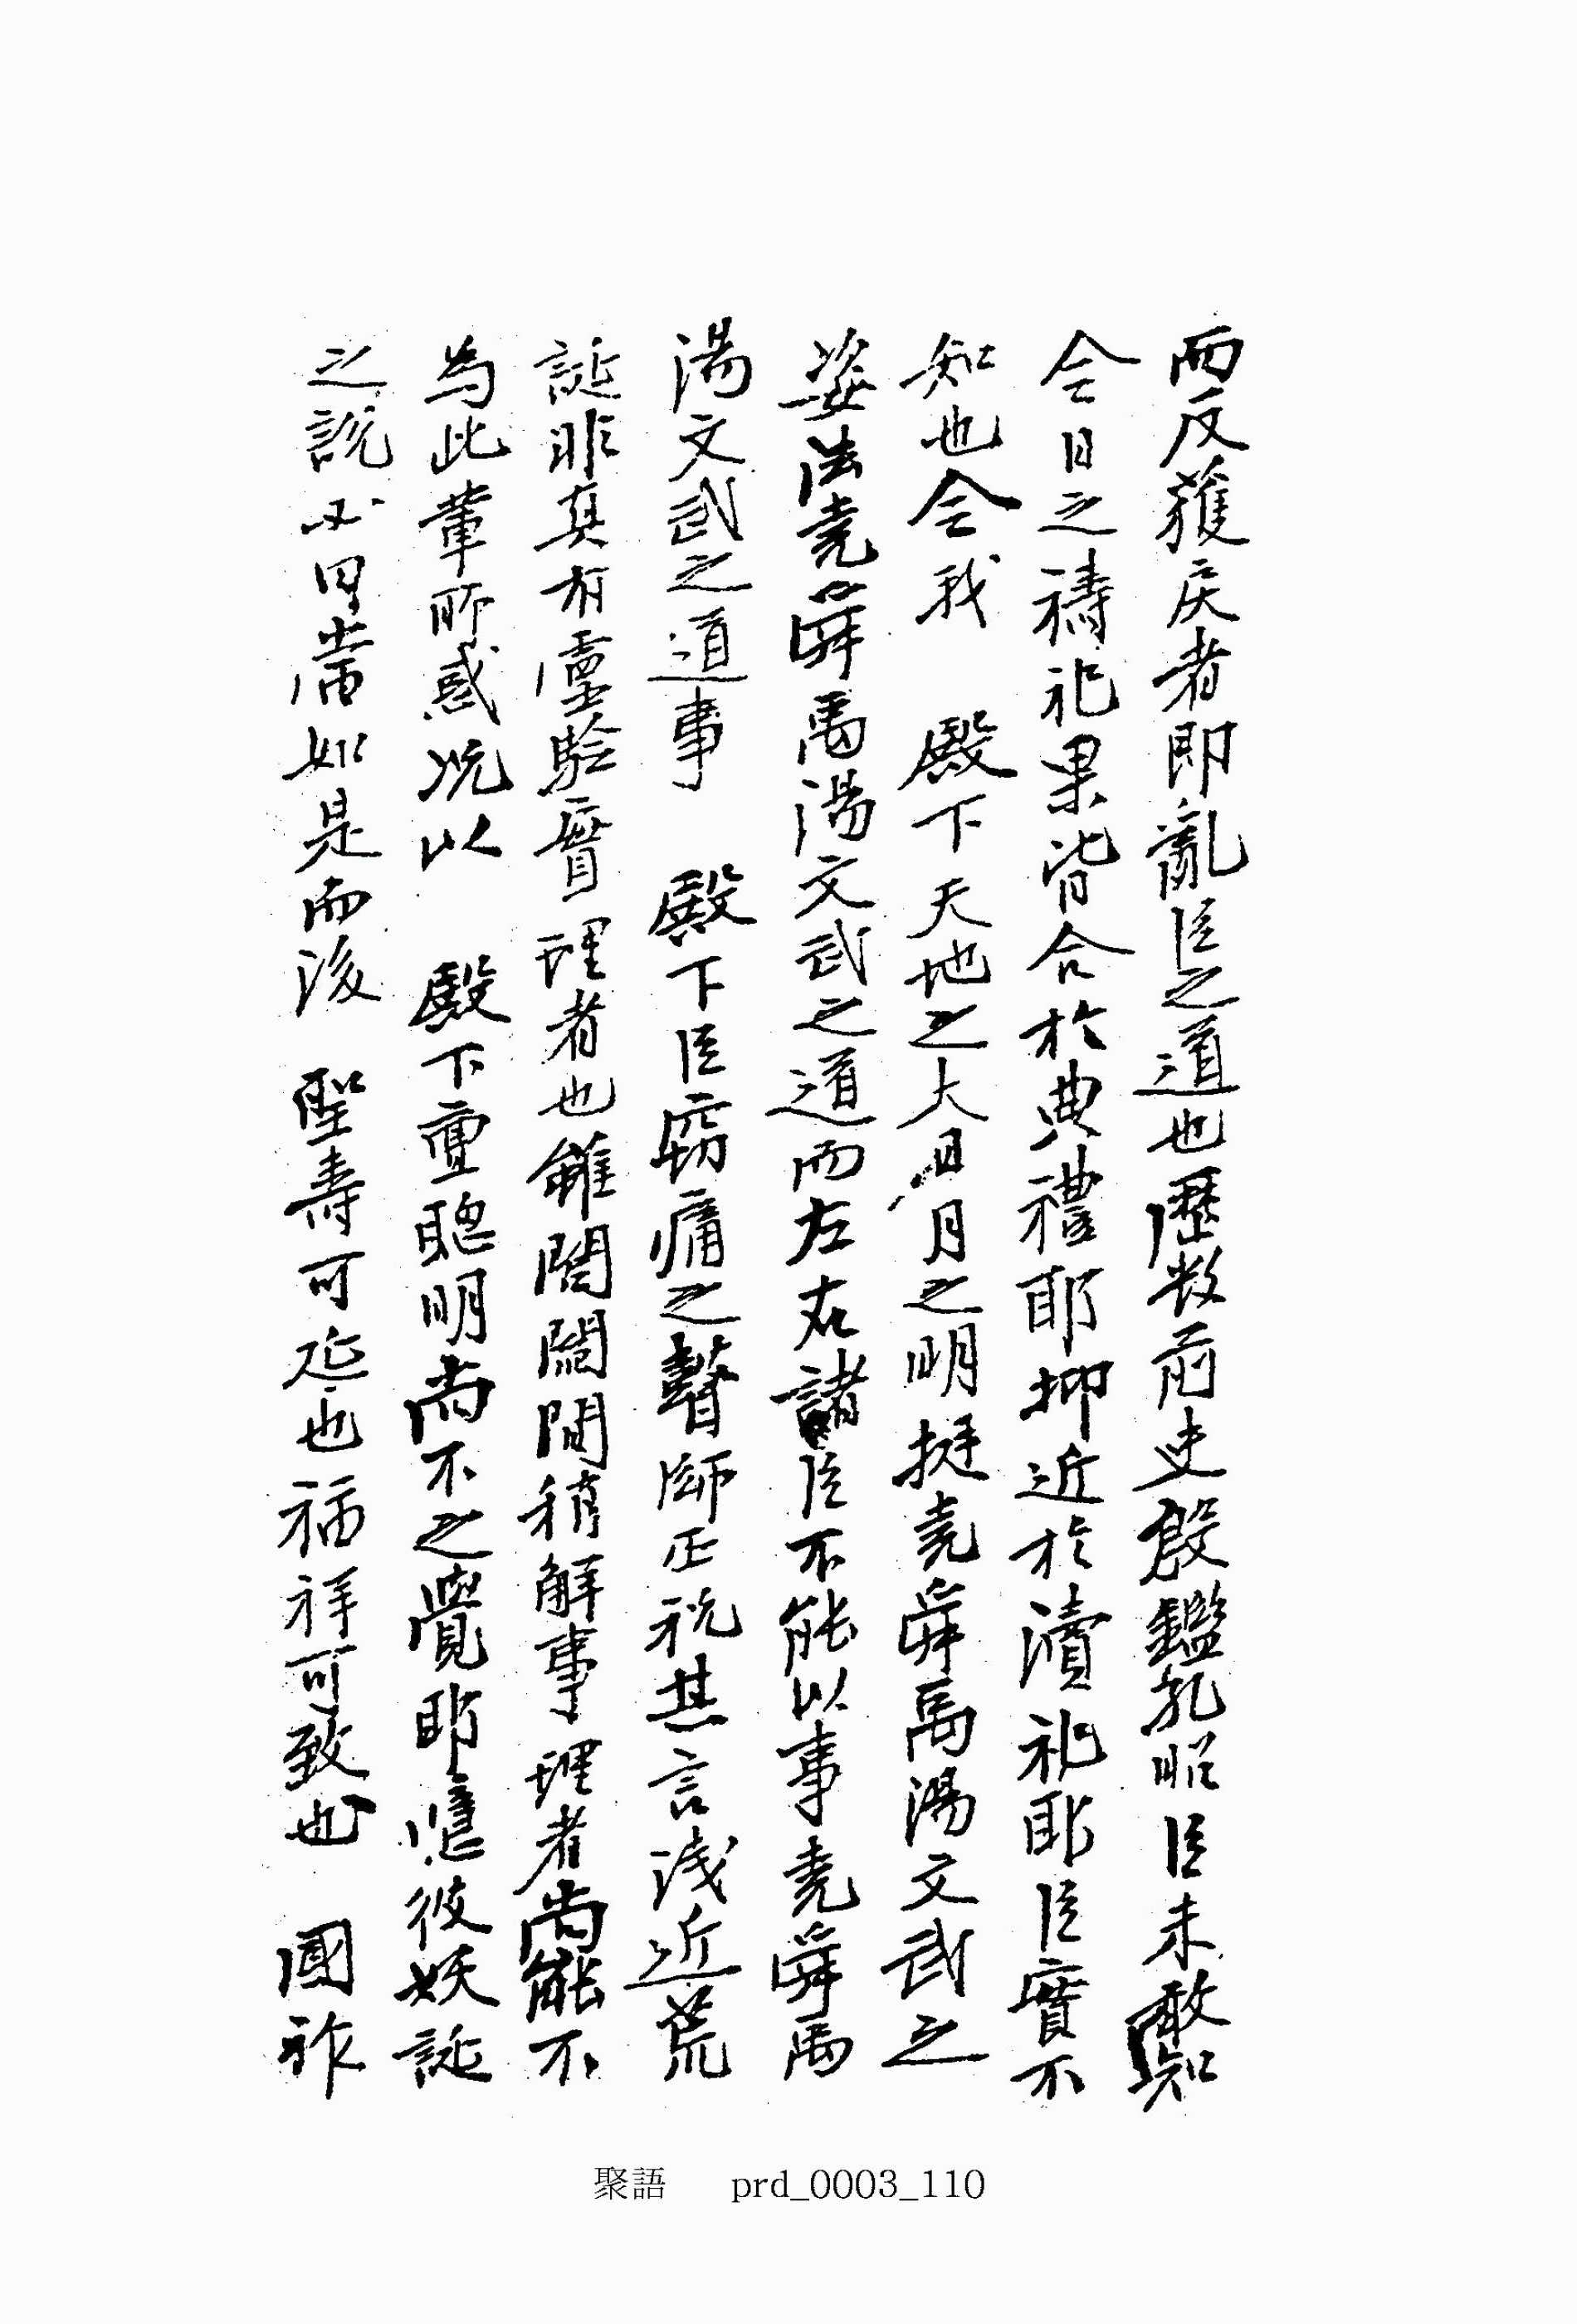 而反獲戾者即亂臣之道也歷数前史殷鑑孔昭臣未敢知
今日之禱祀果皆合於典禮耶抑近於瀆祀耶臣實不
知也今我 殿下天地之大日月之明挺堯舜禹湯文武之
姿法堯舜禹湯文武之道而左右諸臣不能以事堯舜禹
湯文武之道事 殿下臣窃痛之瞽師巫祝其言淺近荒
誕非真有靈驗實理者也雖閭閻間稍解事理者尚能不
為此輩所惑况以 殿下亶聰明尚不之覺耶憶彼妖誕
之說必曰當如是而後 聖壽可延也福祥可致也 國祚
聚語 prd_0003_110